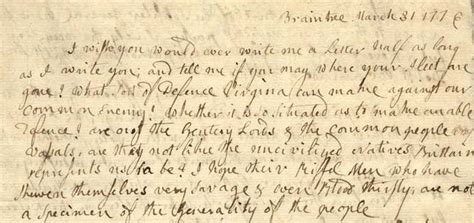 Braintree March 31 1776
I wish you would ever write me a Letter half as long
as I write you; and tell me if you may where your Fleet are
gone? What sort of Defence Virginia can make against our
common Enemy? Whether it is so situated as to make an able
Defence? are not the Gentery Lords & the common people
vassals, are they not like the uncivilized Natives Brittain
represents us to be? I hope their Riffel Men who have
shewen themselves very savage & even Blood thirsty; are not
a specimen of the Generality of the people